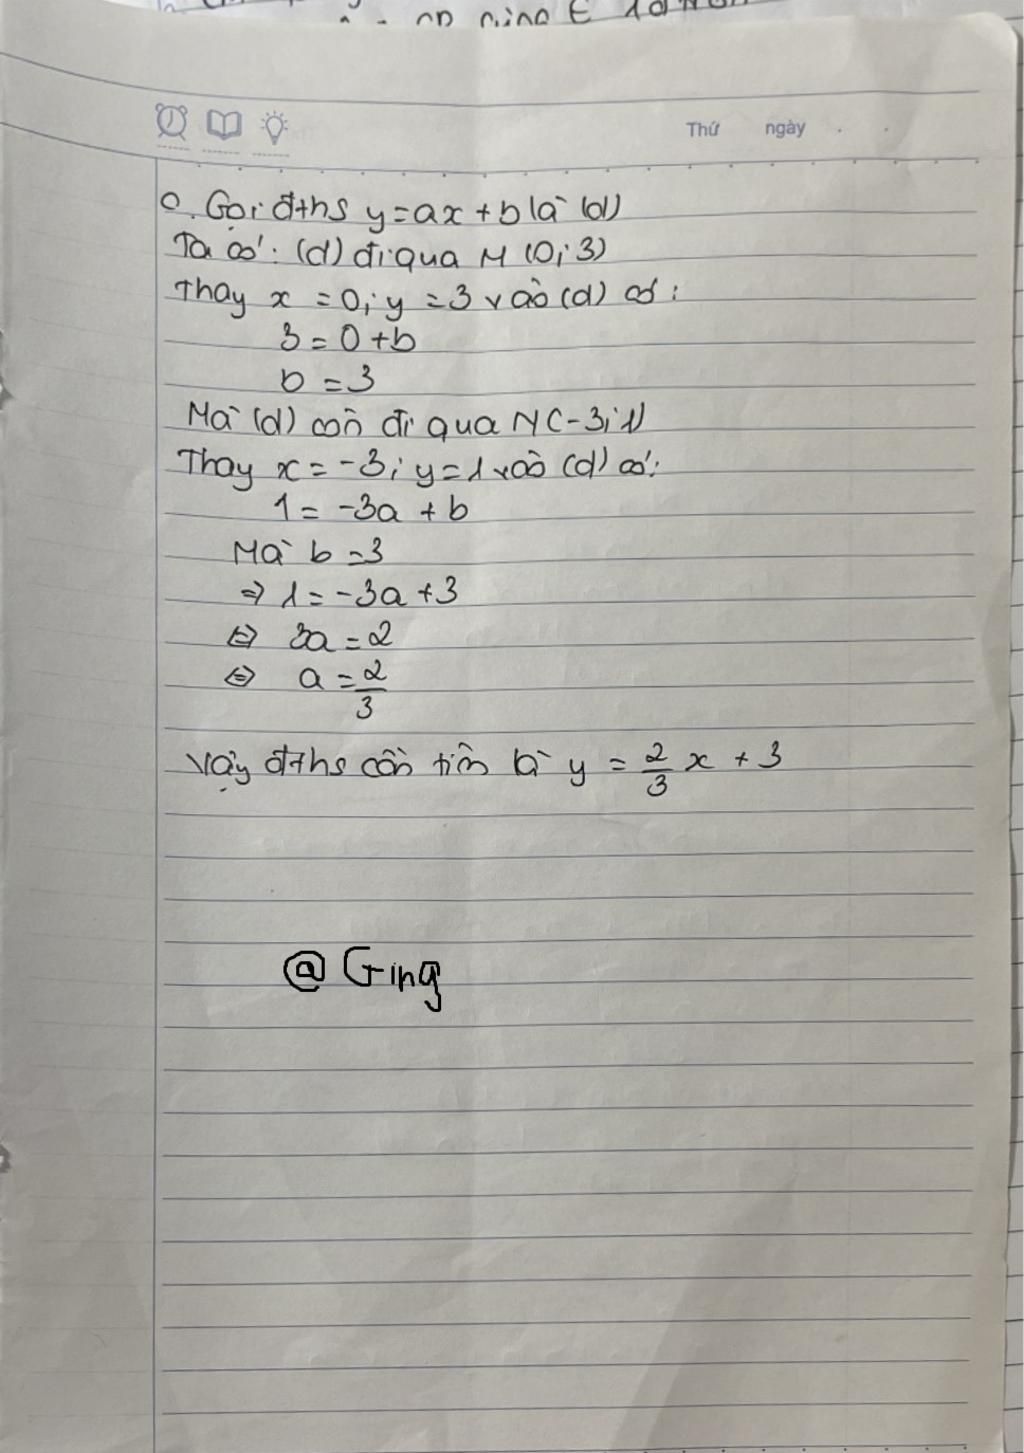 Thứ ngày
c. Gọi đths y=ax+b là (d)
Ta có: (d) đi qua M (0; 3)
Thay x = 0; y = 3 vào (d) có:
3 = 0 + b
b = 3
Mà (d) còn đi qua N(-3; 1)
Thay x = -3; y = 1 vào (d) có:
1 = -3a + b
Mà b = 3
⇒ 1 = -3a + 3
⇔ 3a = 2
⇔ a = 2/3
Vậy đths cần tìm là y = 2/3 x + 3
@Ging